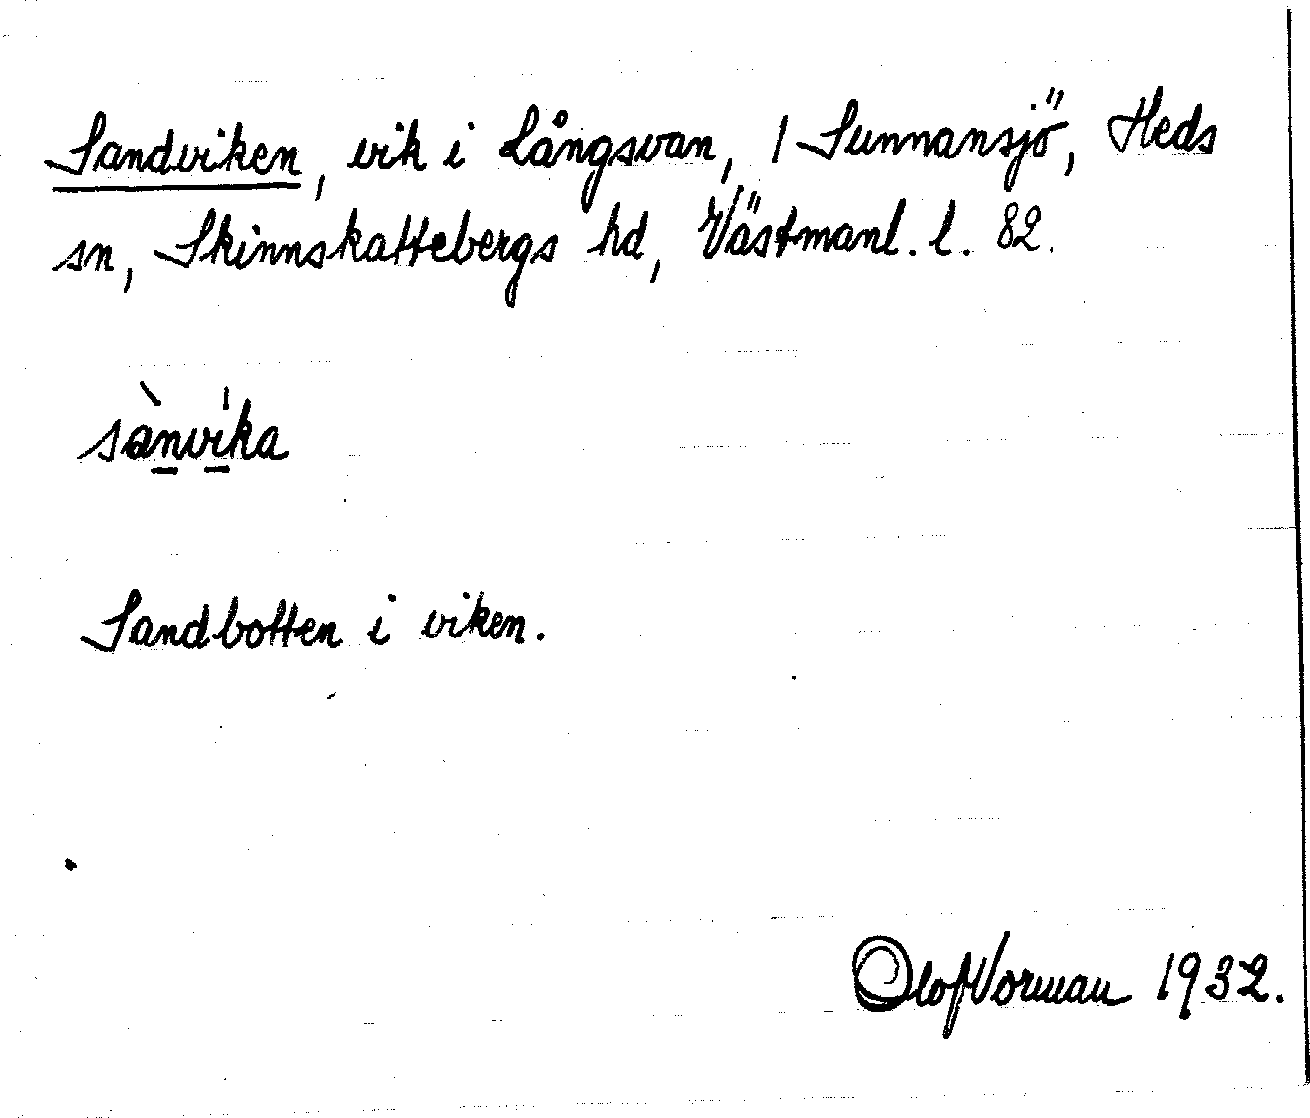 Sandviken, vik i Långsvan, 1 Sunnansjö, Heds
sn, Skinnskattebergs hd, Västmanl. l. 82.
sànvíka
Sandbotten i viken.
Olof Norman 1932.